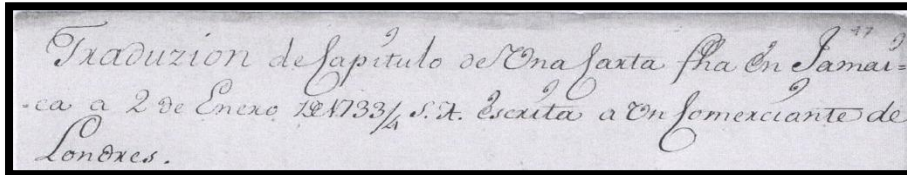 47
Traduzion de Capitulo de Una Carta fha en Jamai=
ca a 2 de Enero de 1733/4 S. A. escrita a Un Comerciante de
Londres.